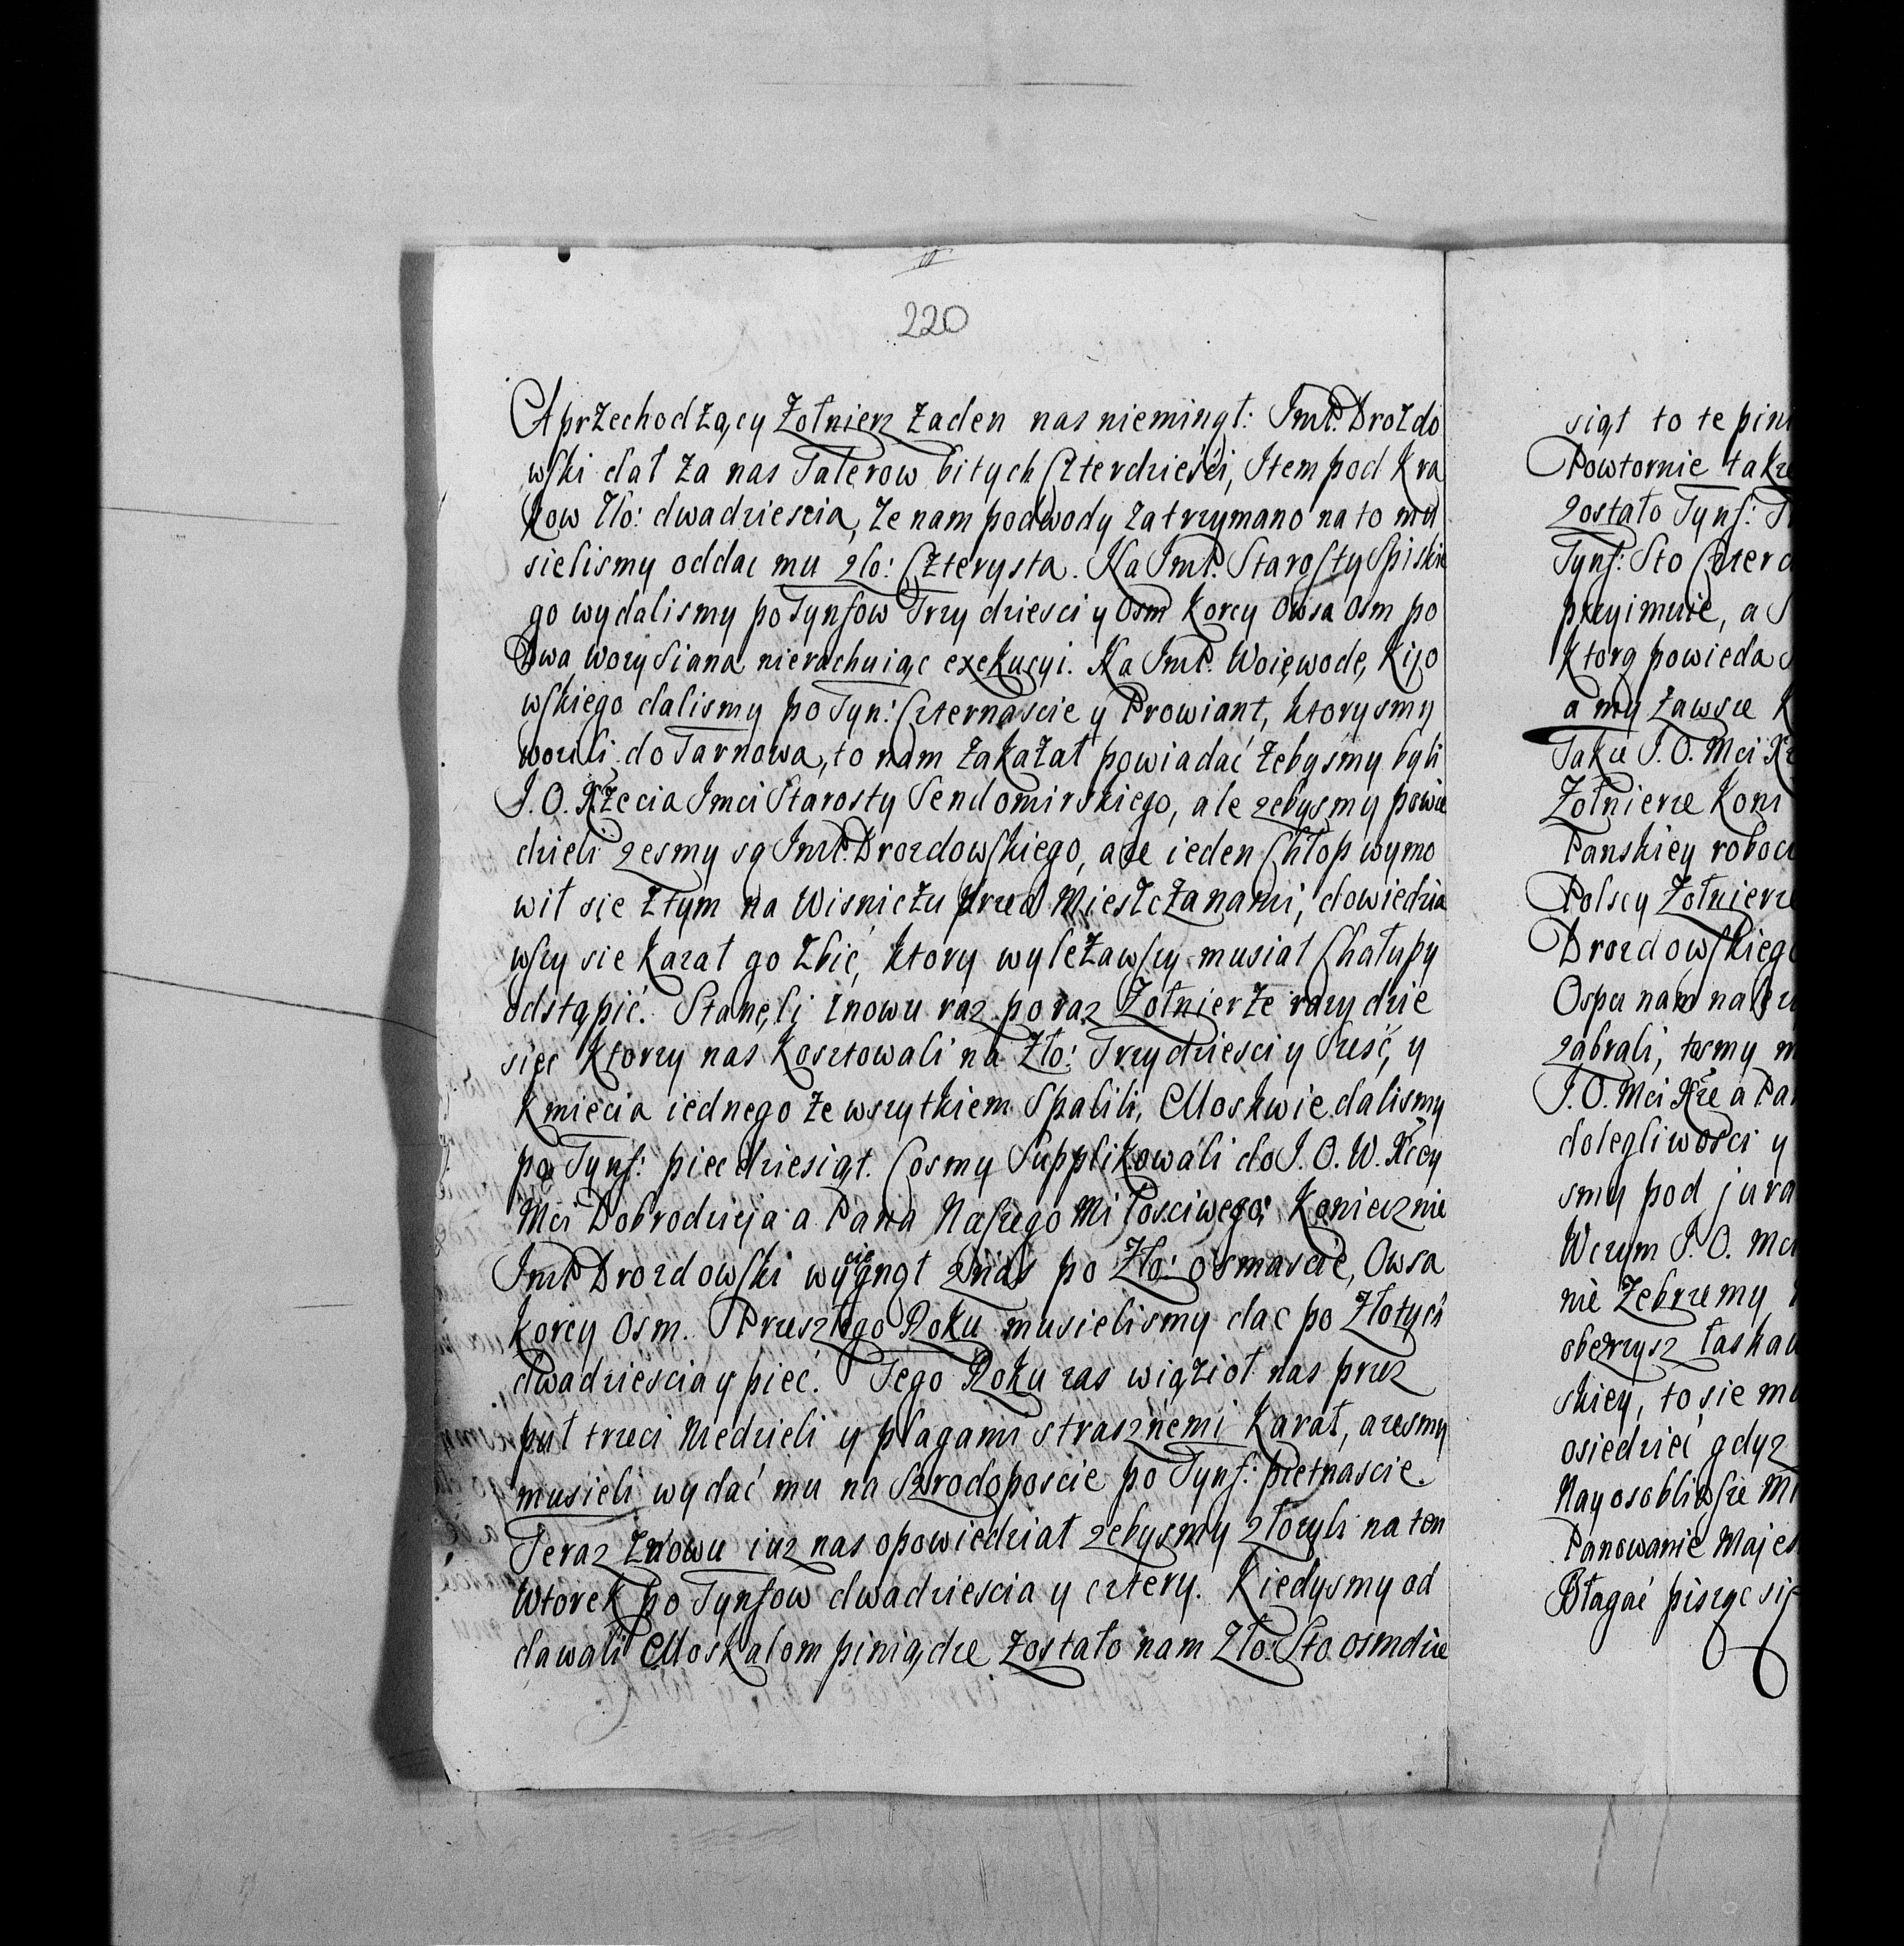 220
A przechodzący Zołnierz zaden nas nieminął: Jmć P. Drozdo
wski dał za nas Talerow bitych Czterdzieści, Item pod Kra
kow Zło: dwadziescia, ze nam podwody zatrzymano na to mu
sielismy oddac mu zło: Czterysta. Na Jmć P. Starosty Spiskie
go wydalismy po Tynfow Trzydziesci y Osm Korcy Owsa Osm po
Dwa wozy Siana nierachuiąc exekucyi. Na Jmć P. Woięwode, Kijo
wskiego dalismy po Tyn: Czternascie y Prowiant, ktorysmy
wozili do Tarnowa, to nam zakazał powiadać żebysmy byli
J. O. Xżecia Jmci Starosty Sendomirskiego, ale zebysmy powie
dzieli zesmy są Jmć P. Drozdowskiego, aże ieden Chłop wymo
wił sie ztym na Wisniczu przed Mieszczanami, dowiedzia
wszy sie kazał go zbić, ktory wyleżawszy musiał Chałupy
odstąpić. Stanęli znowu raz po raz Zołnierze razy dzie
sięc ktorzy nas kosztowali na Zło: Trzydziesci y Sześć, y
Kmiecia iednego ze wszytkiem Spalili, Moskwie dalismy
po Tynf: piecdziesiąt. Cosmy Supplikowali do J. O. W. Xcey
Mci Dobrodzieja a Pana Naszego Miłosciwego; Koniecznie
Jmć P. Drozdowski wyciągnął znas po Zło: osmascie, Owsa
korcy Osm. Przeszłego Roku musielismy dac po Złotych
dwadziescia y pieć. Tego Roku zas wiąził nas przez
puł trzeci Niedzieli y plagami strasznemi karał, azesmy
musieli wydać mu na Szrodoposcie po Tynf: pietnascie.
Teraz znowu iuz nas opowiedział zebysmy złozyli na ten
Wtorek po Tynfow dwadziescia y cztery. Kiedysmy od
dawali Moskalom pieniądze zostało nam Zło: Sto osmdzie
siąt to te pini
Powtornie takze
zostało Tynf:
Tynf: Sto Czterd
przyimuie, a
ktorą powieda
a my zawsze
Takze J. O. Mci
Zołnierze koni
Panskiey roboci
Polscy Zołnierze
Drozdowskiego
Ospa nam
zabrali, tosmy
J. O. Mci Xze a Pa
dolegliwosci y
smy pod jura
Wczym J. O. Mci
nie Zebrzemy
obezrzysz łaskaw
skiey, to sie mu
osiedzieć gdyz
Nayosobliwsze Mi
Panowanie Majes
Błagać pisząc się